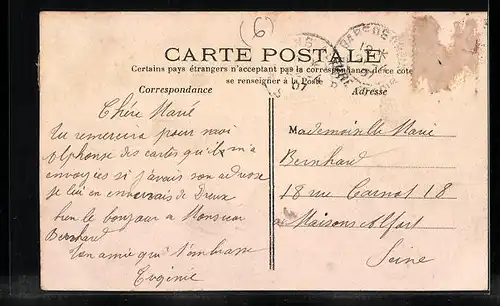 (6)
GARE DE
07
CARTE POSTALE
Certains pays étrangers n'acceptant pas la correspondance de ce côté
se renseigner à la Poste
Correspondance
Adresse
Chère Marie
Tu remerciera pour moi
Alphonse des cartes qu'ils m'a
envoyées si j'avais son adresse
je lui en enverrais de Dreux
bien le bonjour a Monsieur
Bernhard
Ton amie qui t'embrasse
Eugénie
Mademoiselle Marie
Bernhard
18 rue Carnot 18
a Maisons Alfort
Seine